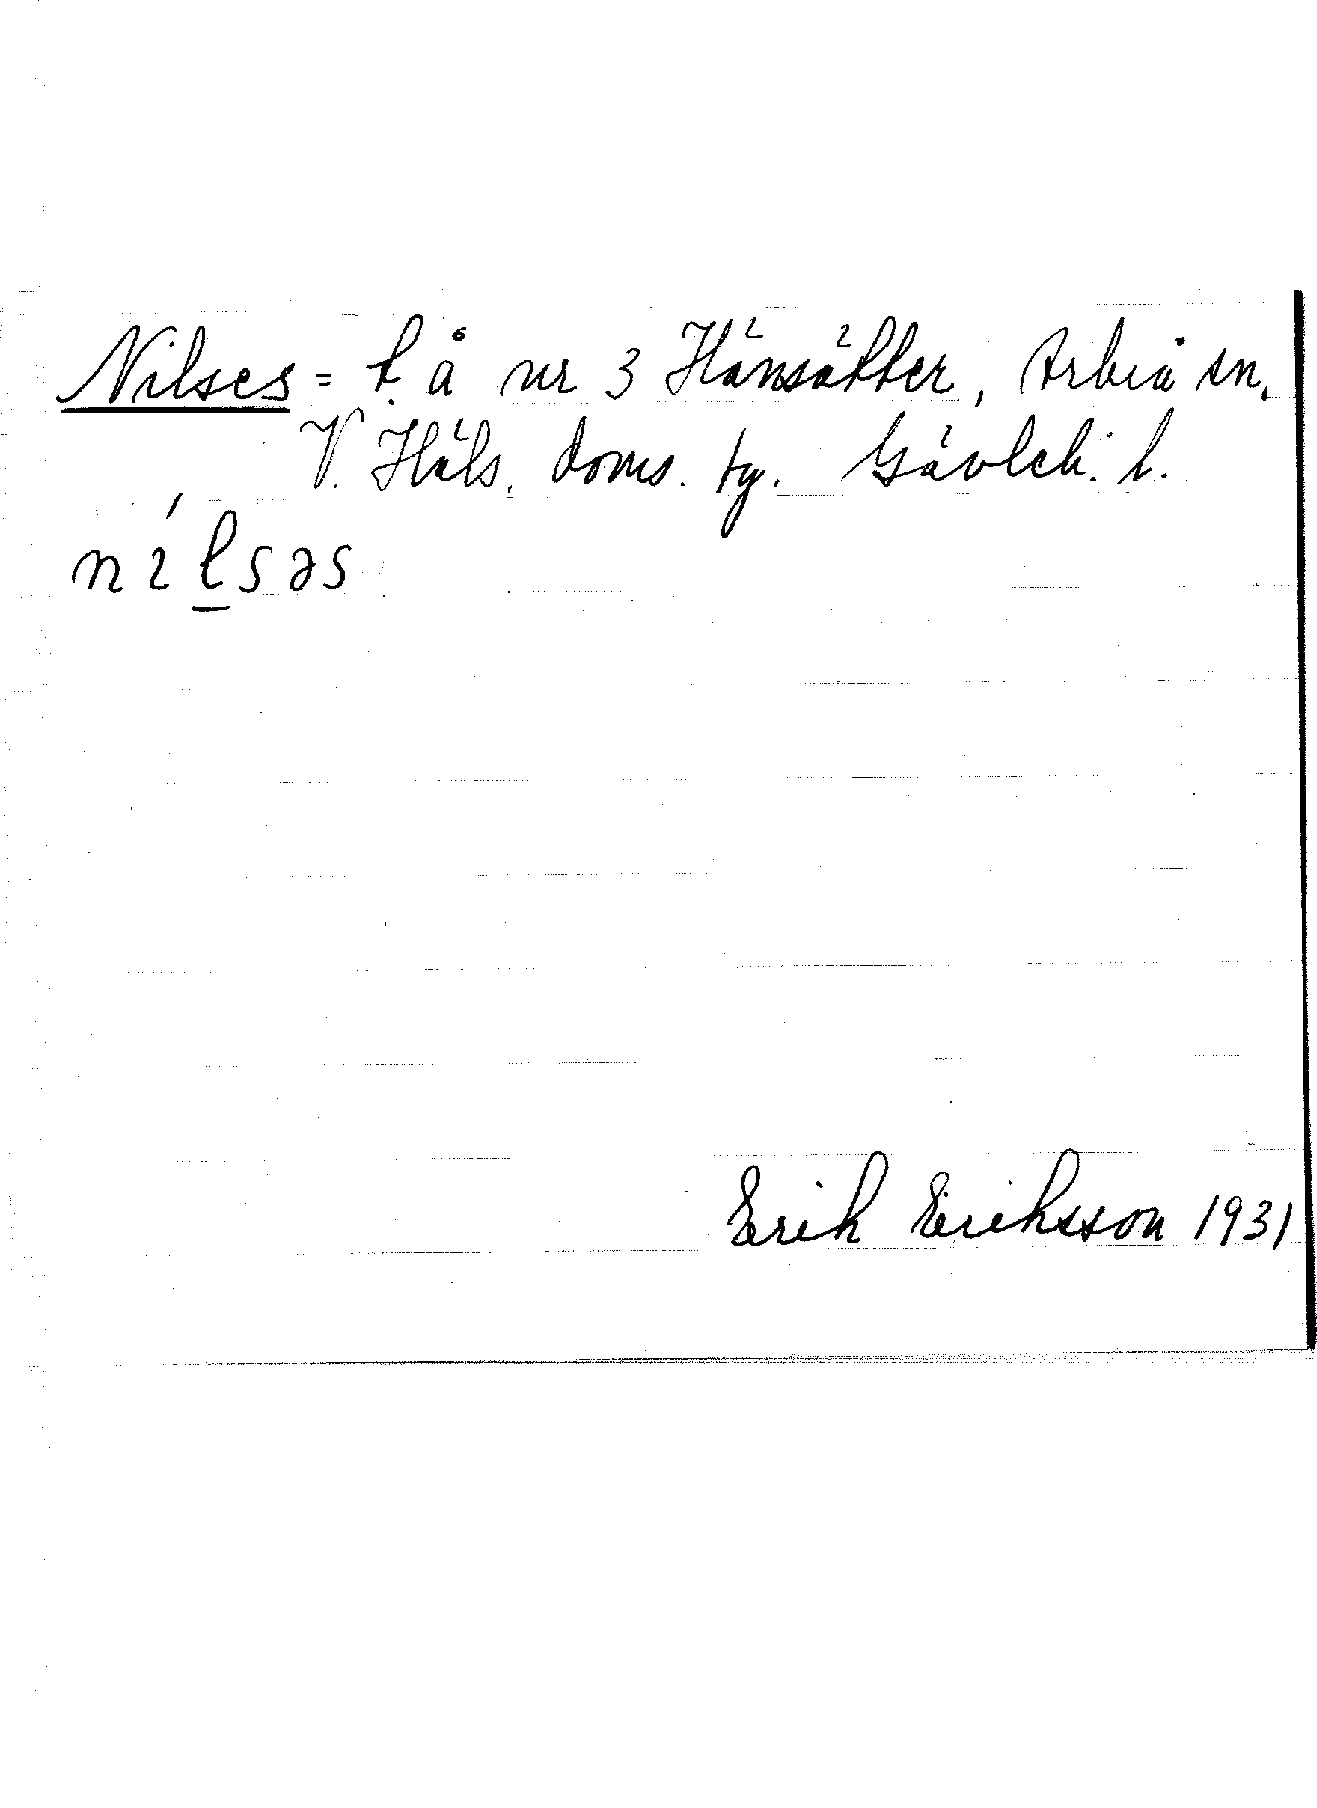 Nilses = t. å nr 3 Hänsätter, Arbrå sn.
V. Häls. doms. tg. Gävleb. l.
nílsəs
Erik Eriksson 1931